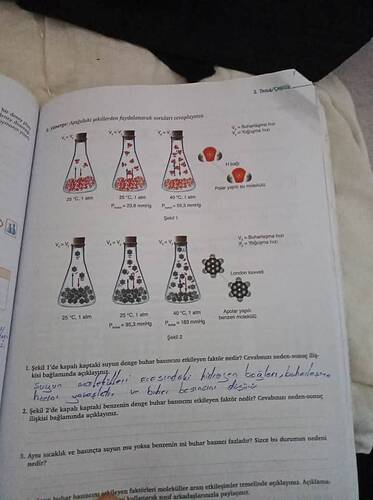 3. Tema/Çeşitlilik
3. Yönerge: Aşağıdaki şekillerden faydalanarak soruları cevaplayınız.
V_b = Buharlaşma hızı
V_y = Yoğuşma hızı
H bağı
Polar yapılı su molekülü
25 °C, 1 atm
25 °C, 1 atm
40 °C, 1 atm
= 23,8 mmHg
= 55,3 mmHg
Şekil 1
V_b = Buharlaşma hızı
V_y = Yoğuşma hızı
London kuvveti
Apolar yapılı
benzen molekülü
25 °C, 1 atm
25 °C, 1 atm
40 °C, 1 atm
= 95,3 mmHg
= 183 mmHg
Şekil 2
1. Şekil 1'de kapalı kaptaki suyun denge buhar basıncını etkileyen faktör nedir? Cevabınızı neden-sonuç iliş-
kisi bağlamında açıklayınız.
Suyun molekülleri arasındaki hidrojen bağları, buharlaşma
hızını yavaşlatır ve buhar basıncını düşürür
2. Şekil 2'de kapalı kaptaki benzenin denge buhar basıncını etkileyen faktör nedir? Cevabınızı neden-sonuç
ilişkisi bağlamında açıklayınız.
3. Aynı sıcaklık ve basınçta suyun mu yoksa benzenin mi buhar basıncı fazladır? Sizce bu durumun nedeni
nedir?
buhar basıncını etkileyen faktörleri moleküller arası etkileşimler temelinde açıklayınız. Açıklama-
kullanarak sınıf arkadaşlarınızla paylaşınız.